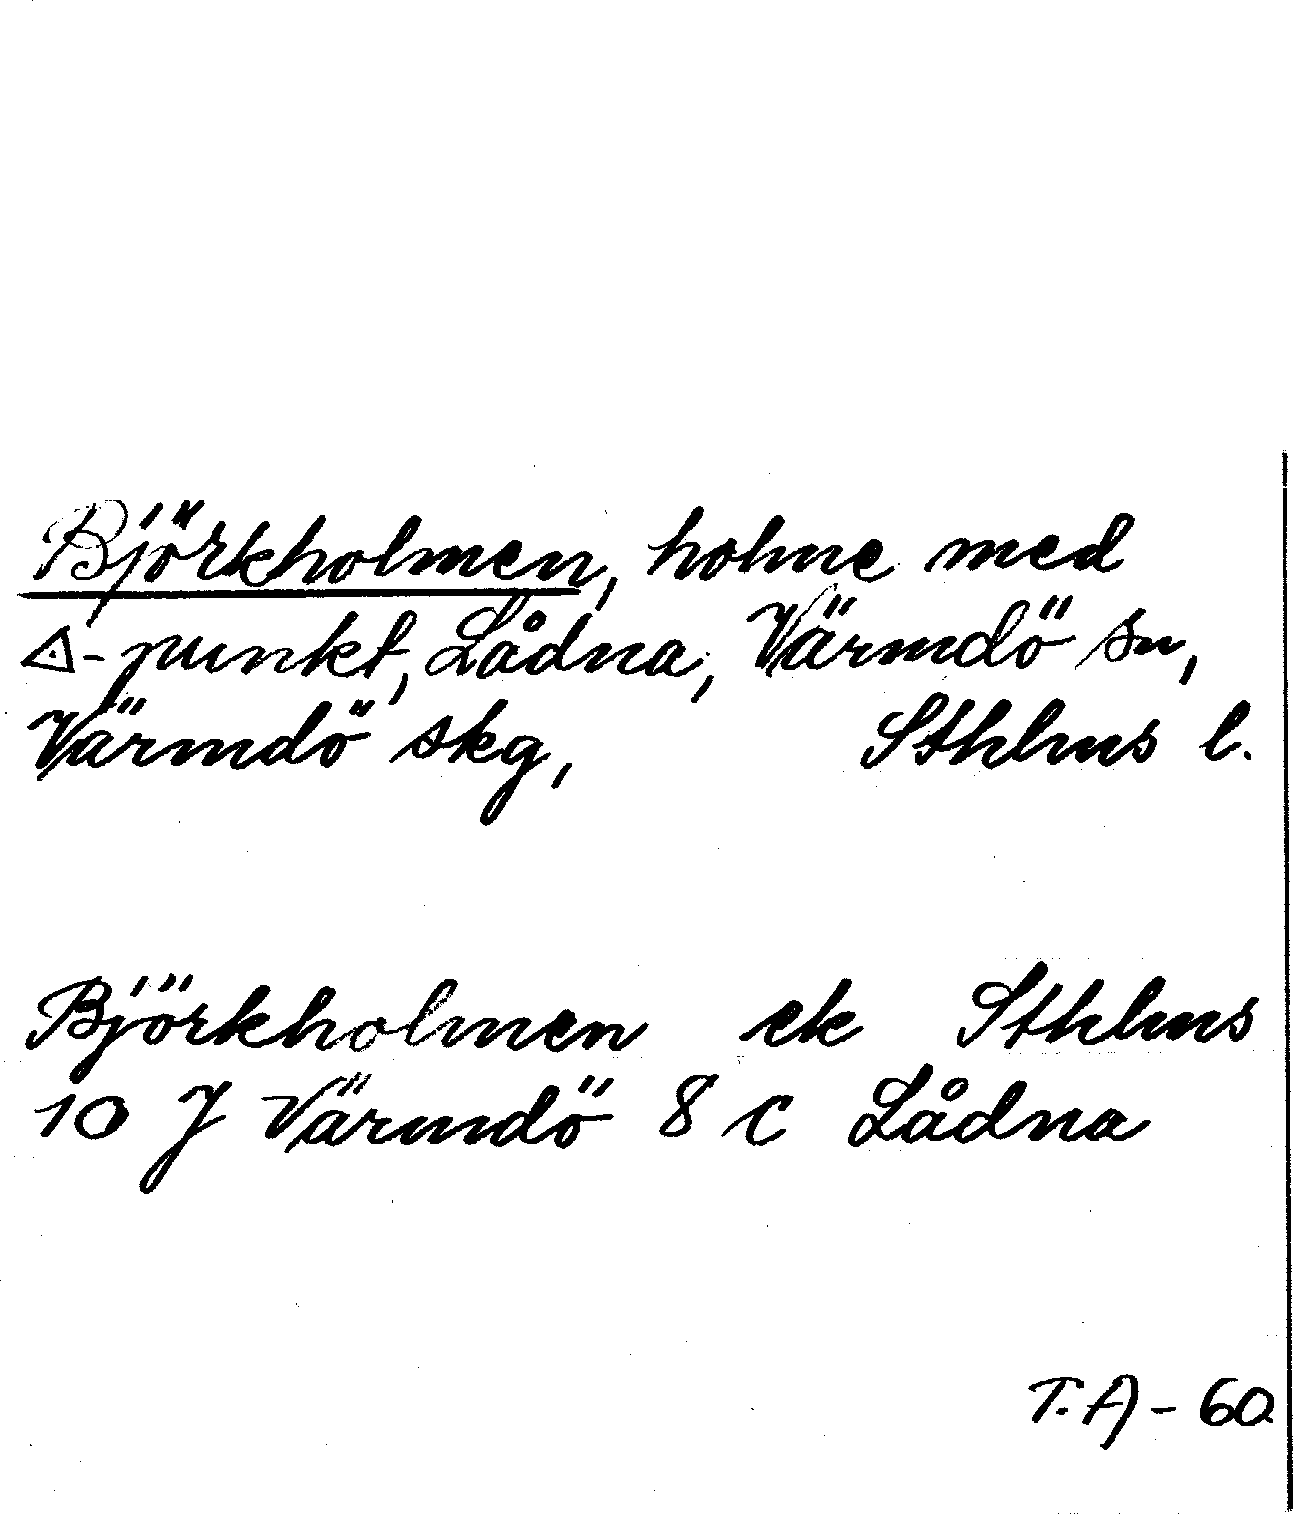 Björkholmen, holme med
△-punkt, Lådna, Värmdö sn,
Värmdö skg, Sthlms l.
Björkholmen ek Sthlms
10 J Värmdö 8 c Lådna
T.A-60